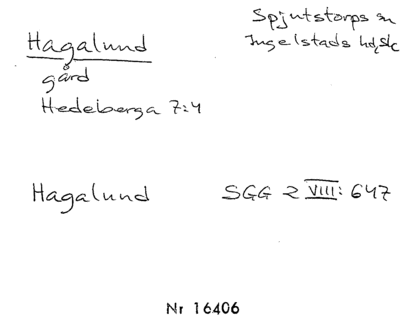 Hagalund
Spjutstorps sn
Ingelstads hd, Sk
gård
Hedeberga 7:4
Hagalund
SGG 2 VIII: 647
Nr 16406